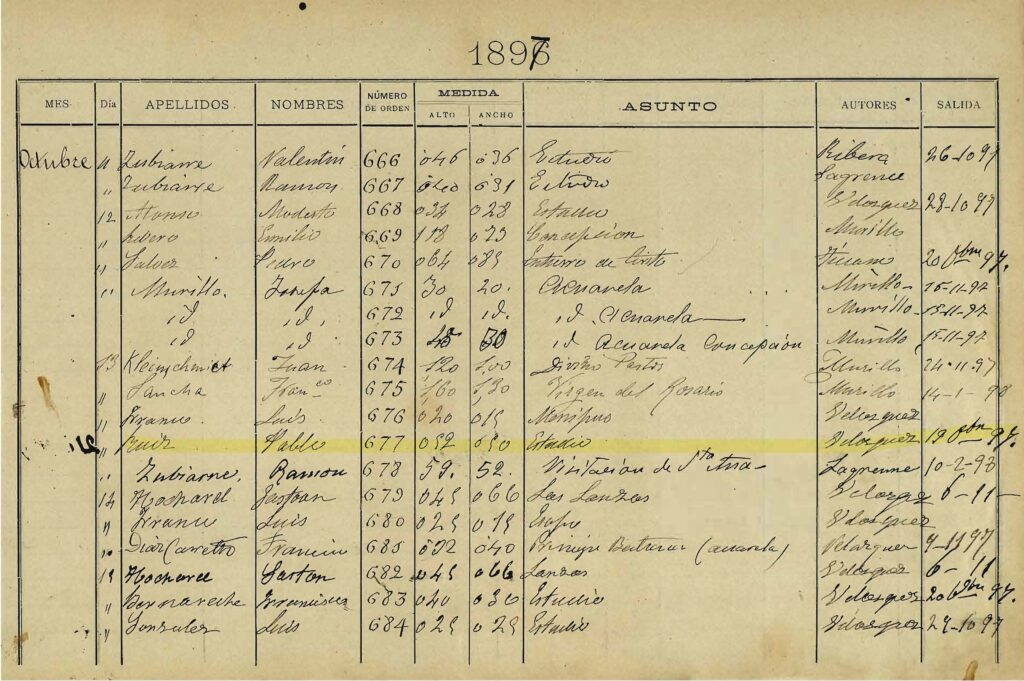 1897
MES Día APELLIDOS NOMBRES NÚMERO DE ORDEN MEDIDA ALTO ANCHO ASUNTO AUTORES SALIDA
Octubre 11 Zubiarre Valentín 666 046 036 Estudio Ribera 26-10 97
" Zubiarre Ramon 667 031 Estudio Lagrenee
12 Alonso Modesto 668 034 028 Estudio Velasquez 28-10 97
" Emilio 669 118 Concepcion Murillo
" Galvez Pedro 670 064 085 Entierro de Cristo Ticiano 20 8bre 97.
" Murillo. Josefa 671 30 20. Acuarela Murillo 15-11-97
id id. 672 id id. id. Acuarela Murillo 15-11-97
id id. 673 45 30 id Acuarela Concepción Murillo 15-11-97
13 Kleinschmict Juan 674 120 100 Divino Pastor Murillo 24-11-97
" Sancha Franco 675 Virgen del Rosario Murillo 14-1-98
" Franco Luis 676 020 015 Menipo Velasquez
" Ruiz Pablo 677 052 Estudio Velasquez 19 8bre 97.
" Zubiarre. Ramon 678 59. 52. Visitacion de Sta Ana Lagrenee 10-2-98
14 Hochard Gaston 679 045 066 Las Lanzas Velasquez 6-11-
" Franco Luis 680 025 015 Esopo Velasquez
" Diaz Carreño 681 032 040 Principe Baltasar (acuarela) Velazquez 9-11 97
15 Hochard Gaston 682 045 066 Lanzas Velasquez 6-11
" Bernareche Francisco 683 040 030 Estudio Velasquez 20 8bre 97.
" Gonzalez Luis 684 025 025 Estudio Velasquez 29-10 97